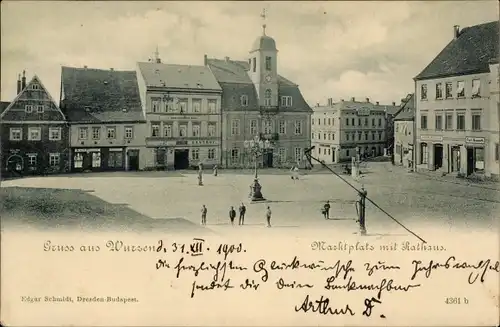 Gruss aus Wurzen d. 31. XII. 1900. Marktplatz mit Rathaus.
Die herzlichsten Glückwünsche zum Jahreswechsel
sendet Dir Dein Banknachbar
Arthur D.
Edgar Schmidt, Dresden-Budapest. 4361 b